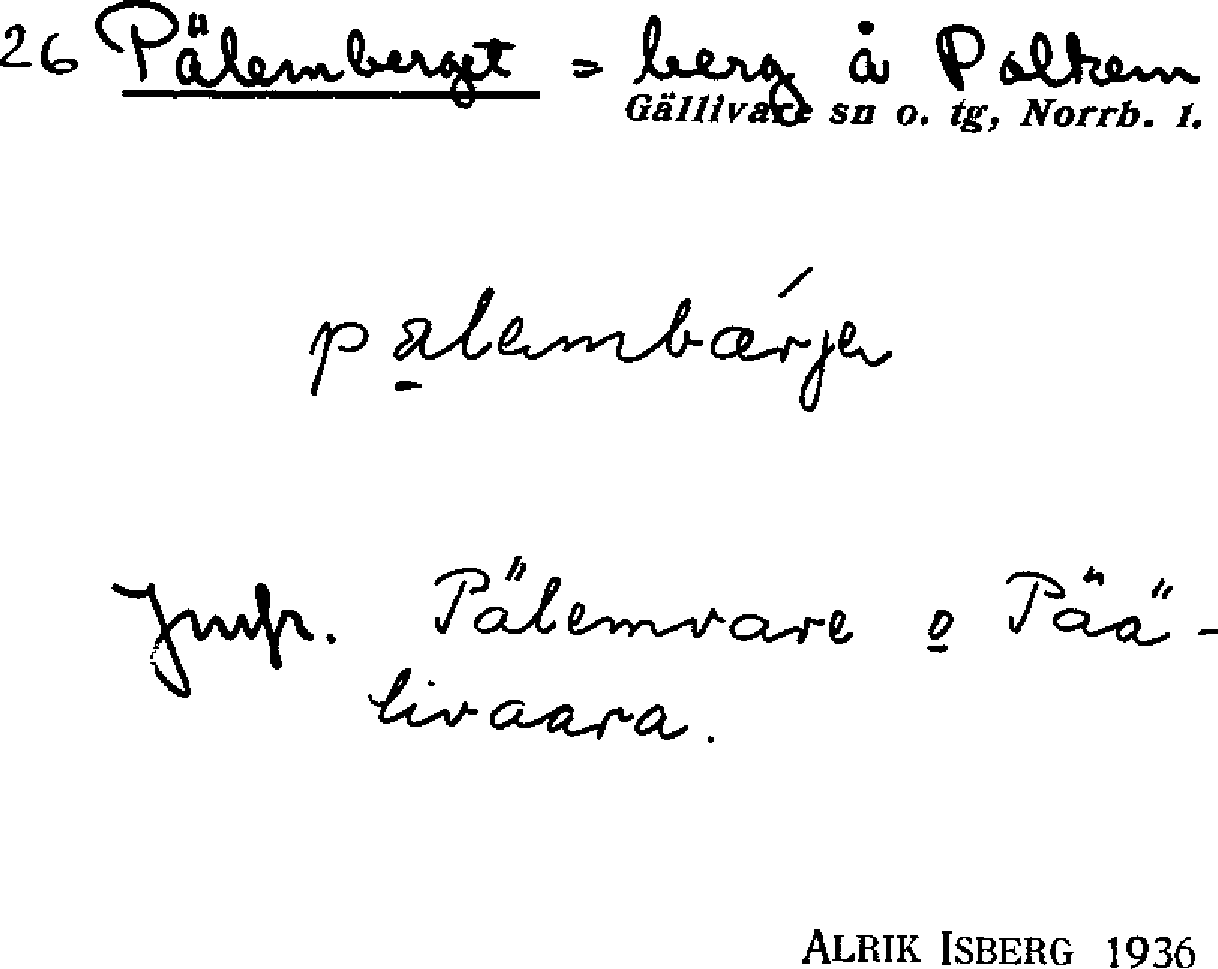 26 Pälemberget = berg å Palkem
Gällivare sn o. tg, Norrb. l.
palembærje
Jmfr. Pälemvare o Pää-
livaara.
ALRIK ISBERG 1936